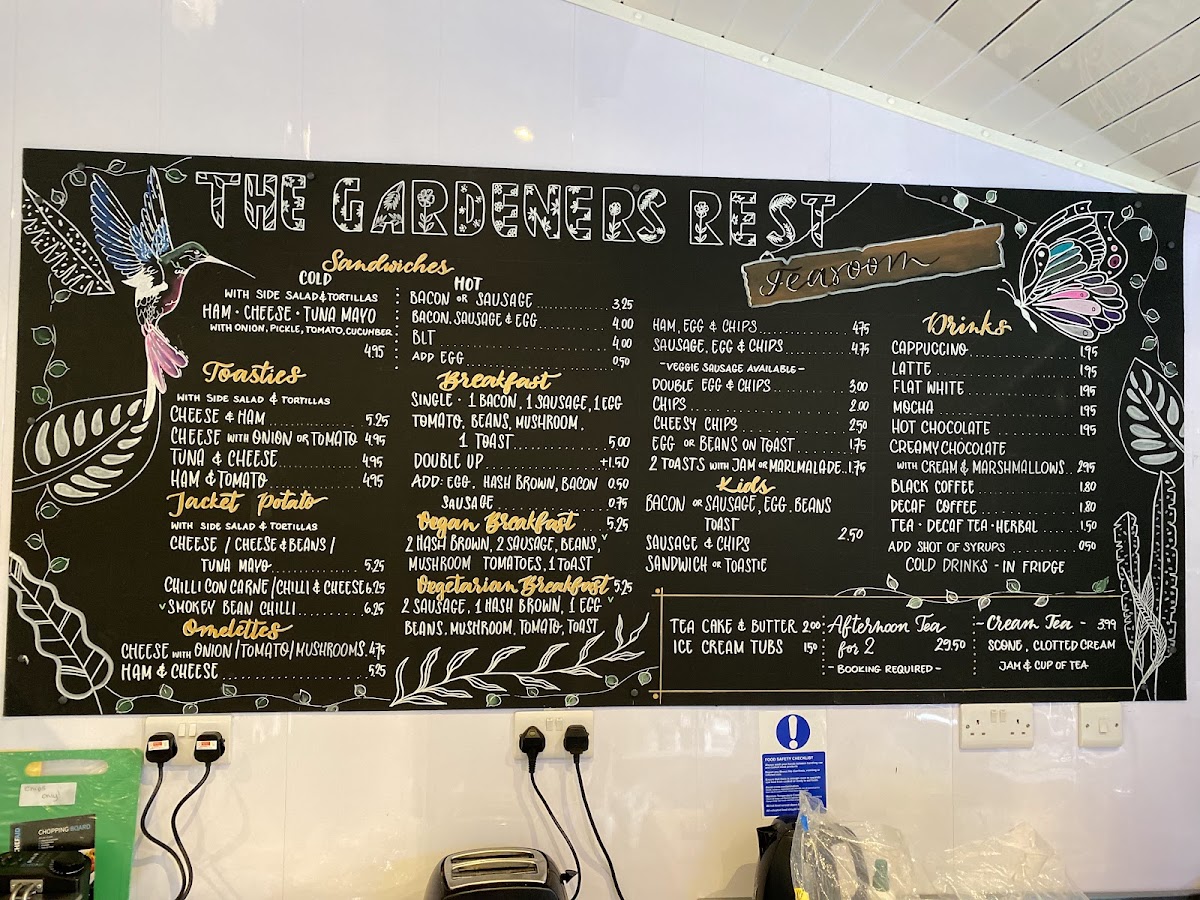 THE GARDENERS REST
Tearoom
Sandwiches
COLD
WITH SIDE SALAD & TORTILLAS
HAM · CHEESE · TUNA MAYO
WITH ONION, PICKLE, TOMATO, CUCUMBER
4.95
HOT
BACON OR SAUSAGE 3.25
BACON, SAUSAGE & EGG 4.00
BLT 4.00
ADD EGG 0.50
Toasties
WITH SIDE SALAD & TORTILLAS
CHEESE & HAM 5.25
CHEESE WITH ONION OR TOMATO 4.95
TUNA & CHEESE 4.95
HAM & TOMATO 4.95
Jacket Potato
WITH SIDE SALAD & TOETILLAS
CHEESE / CHEESE & BEANS /
TUNA MAYO 5.25
CHILLI CON CARNE / CHILLI & CHEESE 6.25
V SMOKEY BEAN CHILLI 6.25
Omelettes
CHEESE WITH ONION/TOMATO/MUSHROOMS. 4.75
HAM & CHEESE 5.25
Breakfast
SINGLE · 1 BACON, 1 SAUSAGE, 1 EGG
TOMATO, BEANS, MUSHROOM,
1 TOAST 5.00
DOUBLE UP +1.50
ADD: EGG, HASH BROWN, BACON 0.50
SAUSAGE 0.75
Vegan Breakfast 5.25
2 HASH BROWN, 2 SAUSAGE, BEANS, V
MUSHROOM TOMATOES, 1 TOAST
Vegetarian Breakfast 5.25
2 SAUSAGE, 1 HASH BROWN, 1 EGG V
BEANS, MUSHROOM, TOMATO, TOAST
HAM, EGG & CHIPS 4.75
SAUSAGE, EGG & CHIPS 4.75
- VEGGIE SAUSAGE AVAILABLE -
DOUBLE EGG & CHIPS 3.00
CHIPS 2.00
CHEESY CHIPS 2.50
EGG OR BEANS ON TOAST 1.75
2 TOASTS WITH JAM OR MARLMALADE. 1.75
Kids
BACON OR SAUSAGE, EGG, BEANS
TOAST
2.50
SAUSAGE & CHIPS
SANDWICH OR TOASTIE
Drinks
CAPPUCCINO 1.95
LATTE 1.95
FLAT WHITE 1.95
MOCHA 1.95
HOT CHOCOLATE 1.95
CREAMY CHOCOLATE
WITH CREAM & MARSHMALLOWS.. 2.95
BLACK COFFEE 1.80
DECAF COFFEE 1.80
TEA · DECAF TEA · HERBAL 1.50
ADD SHOT OF SYRUPS 0.50
COLD DRINKS - IN FRIDGE
TEA CAKE & BUTTER 2.00
ICE CREAM TUBS 1.50
Afternoon Tea
for 2 29.50
- BOOKING REQUIRED -
- Cream Tea - 3.99
SCONE, CLOTTED CREAM
JAM & CUP OF TEA
FOOD SAFETY CHECKLIST
CHOPPING BOARD